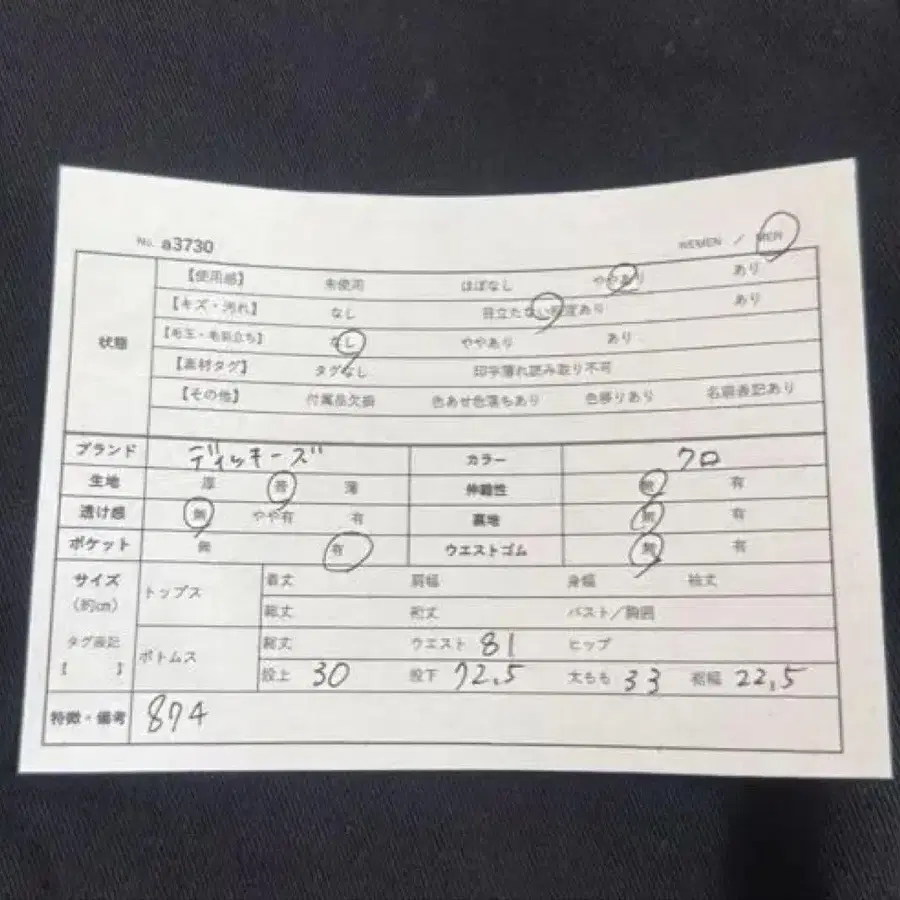 No. a3730 WEMEN / MEN
状態
【使用感】 未使用 ほぼなし ややあり あり
【キズ・汚れ】 なし 目立たない程度あり あり
【毛玉・毛羽立ち】 なし ややあり あり
【素材タグ】 タグなし 印字薄れ読み取り不可
【その他】 付属品欠損 色あせ色落ちあり 色移りあり 名前表記あり
ブランド ディッキーズ カラー クロ
生地 厚 普 薄 伸縮性 無 有
透け感 無 やや有 有 裏地 無 有
ポケット 無 有 ウエストゴム 無 有
サイズ（約cm） トップス 着丈 肩幅 身幅 袖丈
総丈 裄丈 バスト／胸囲
タグ表記【 】 ボトムス 総丈 ウエスト 81 ヒップ
股上 30 股下 72.5 太もも 33 裾幅 22.5
特徴・備考 874